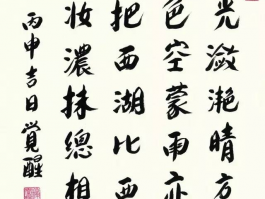 光潋滟晴方
色空蒙雨亦
把西湖比西
妆濃抹總相
丙申吉日覺醒